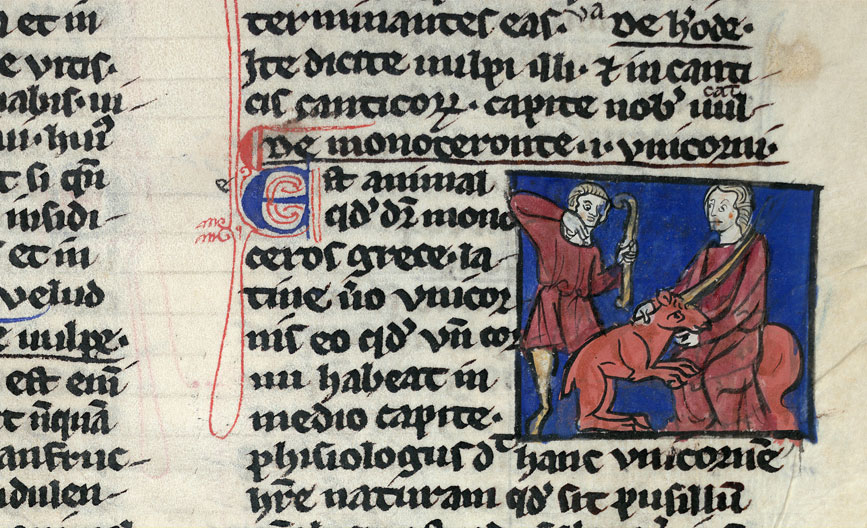 n et in
e urtis.
iabis. in-
t si qn̄
insidi-
s et in
velud
e uulpe.
est eni̅
t nūquā
anfruc-
dulen-
terminantes eas. va De h'ode.
Ite dicite uulpi illi. ⁊ in canti
cis canticoꝝ. capite nob' uul-
De monoceronte .i. vnicorni.
Est animal
qd' dr̄ mono
ceros grece. la-
tine u̅o vnicor
nis eo qd' vn̄ cor
nu habeat in
medio capite.
phisiologus dt hanc vnicornē
hr̄e naturam qd' sit pusillū